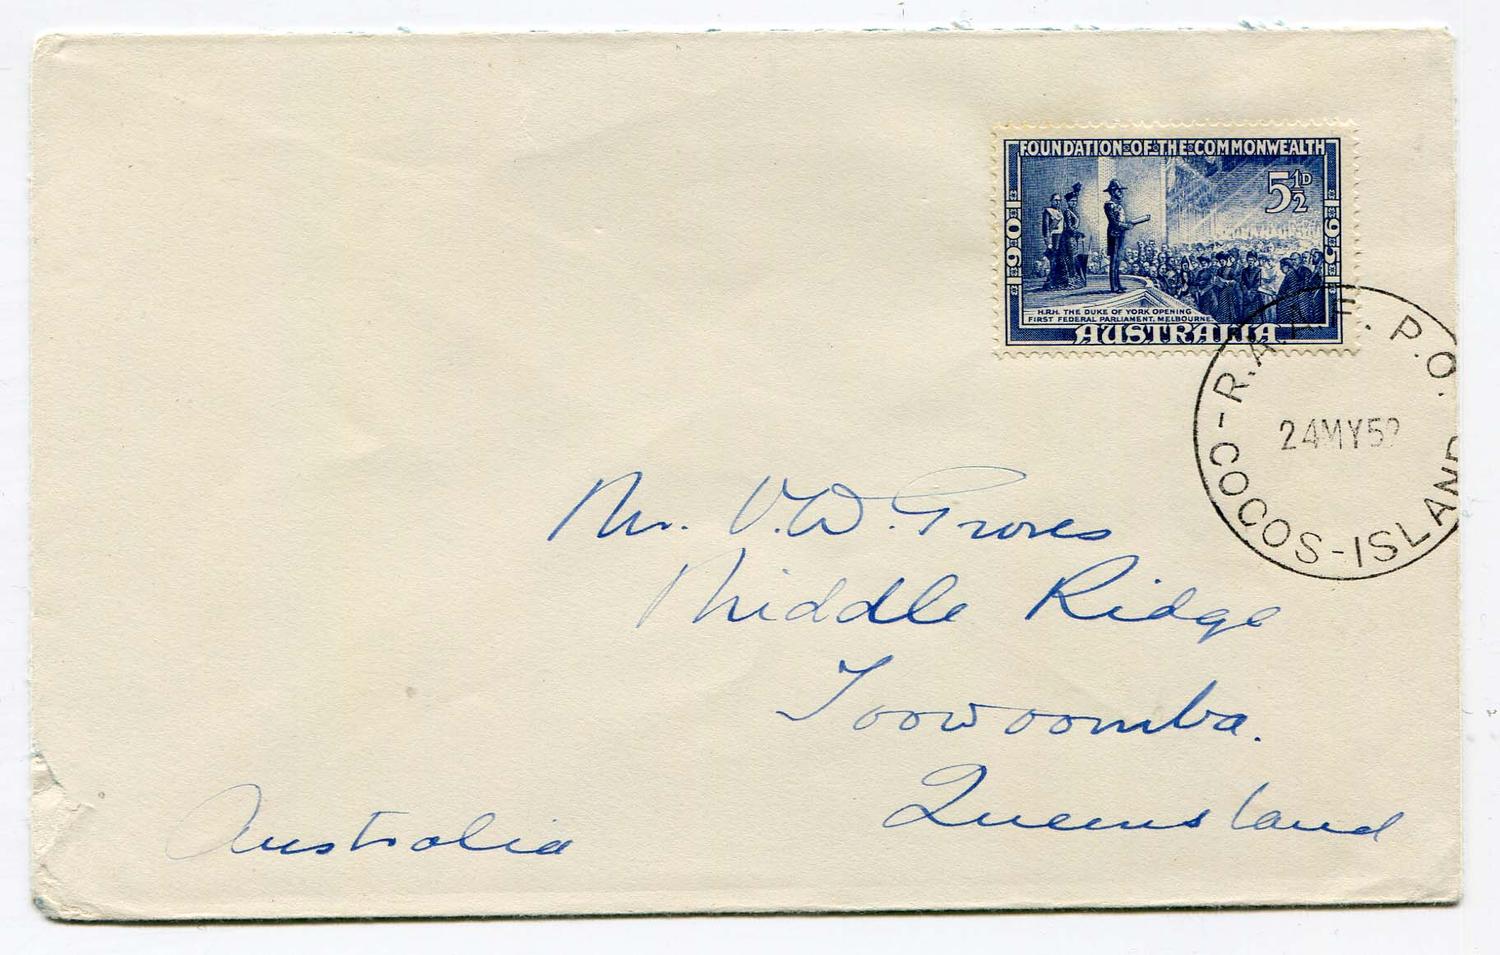 FOUNDATION OF THE COMMONWEALTH
5½D
1901
1951
H.R.H. THE DUKE OF YORK OPENING
FIRST FEDERAL PARLIAMENT, MELBOURNE.
AUSTRALIA
R.A.A.F. P.O.
24MY52
COCOS-ISLAND
Mr. V.W. Groves
Middle Ridge
Toowoomba.
Queensland
Australia